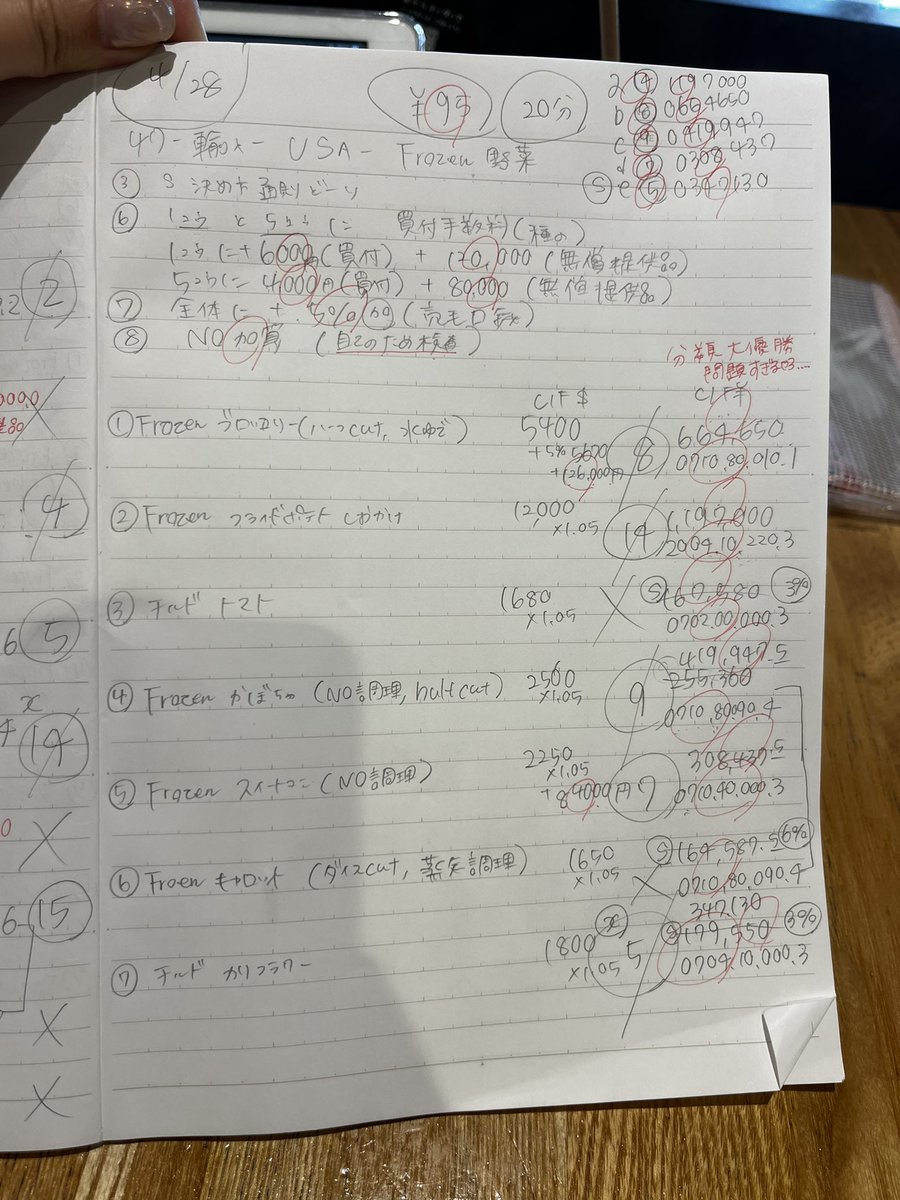 4/28
¥95
20分
a 14 1197000
b 8 0664650
c 9 0419947
d 7 0308437
S e 5 0347130
47-輸入- USA- Frozen 野菜
③ S 決め方 通則どーり
⑥ 1コウと5コウに 買付手数料(種の)
1コウに+6000円(買付) + 120,000 (無償提供品)
5コウに 4000円(買付) + 80,000 (無償提供品)
⑦ 全体に + 5%加
⑧ NO加算 (自己のため検査)
分類大優勝
問題すぎるろ....
CIF $
CIF¥
① Frozen ブロッコリー(ハーフcut, 水ゆで)
5400
+5% 5670
+126,000円
8
664,650
0710,80,010.1
② Frozen フライドポテト しおかけ
12,000
×1.05
14
1,197,000
2004,10,220.3
③ チルド トマト
1680
×1.05
×
S 167,580 3%
0702,00,000.3
④ Frozen かぼちゃ (NO調理, halfcut)
2500
×1.05
9
419,947.5
255,360
0710,80,090.4
⑤ Frozen スイートコーン (NO調理)
2250
×1.05
+84000円
7
308,437.5
0710,40,000.3
⑥ Froen キャロット (ダイスcut, 蒸気調理)
1650
×1.05
×
S 164,587.5 6%
0710,80,090.4
347,130
⑦ チルド カリフラワー
1800
×1.05
x
5
S 179,550 3%
0704,10,000.3
2
4
6 5
x
14
×
6 15
×
×